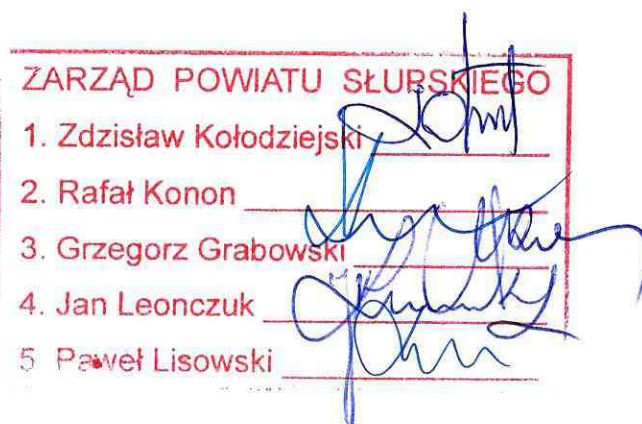 ZARZĄD POWIATU SŁUPSKIEGO
1. Zdzisław Kołodziejski
2. Rafał Konon
3. Grzegorz Grabowski
4. Jan Leonczuk
5 Paweł Lisowski